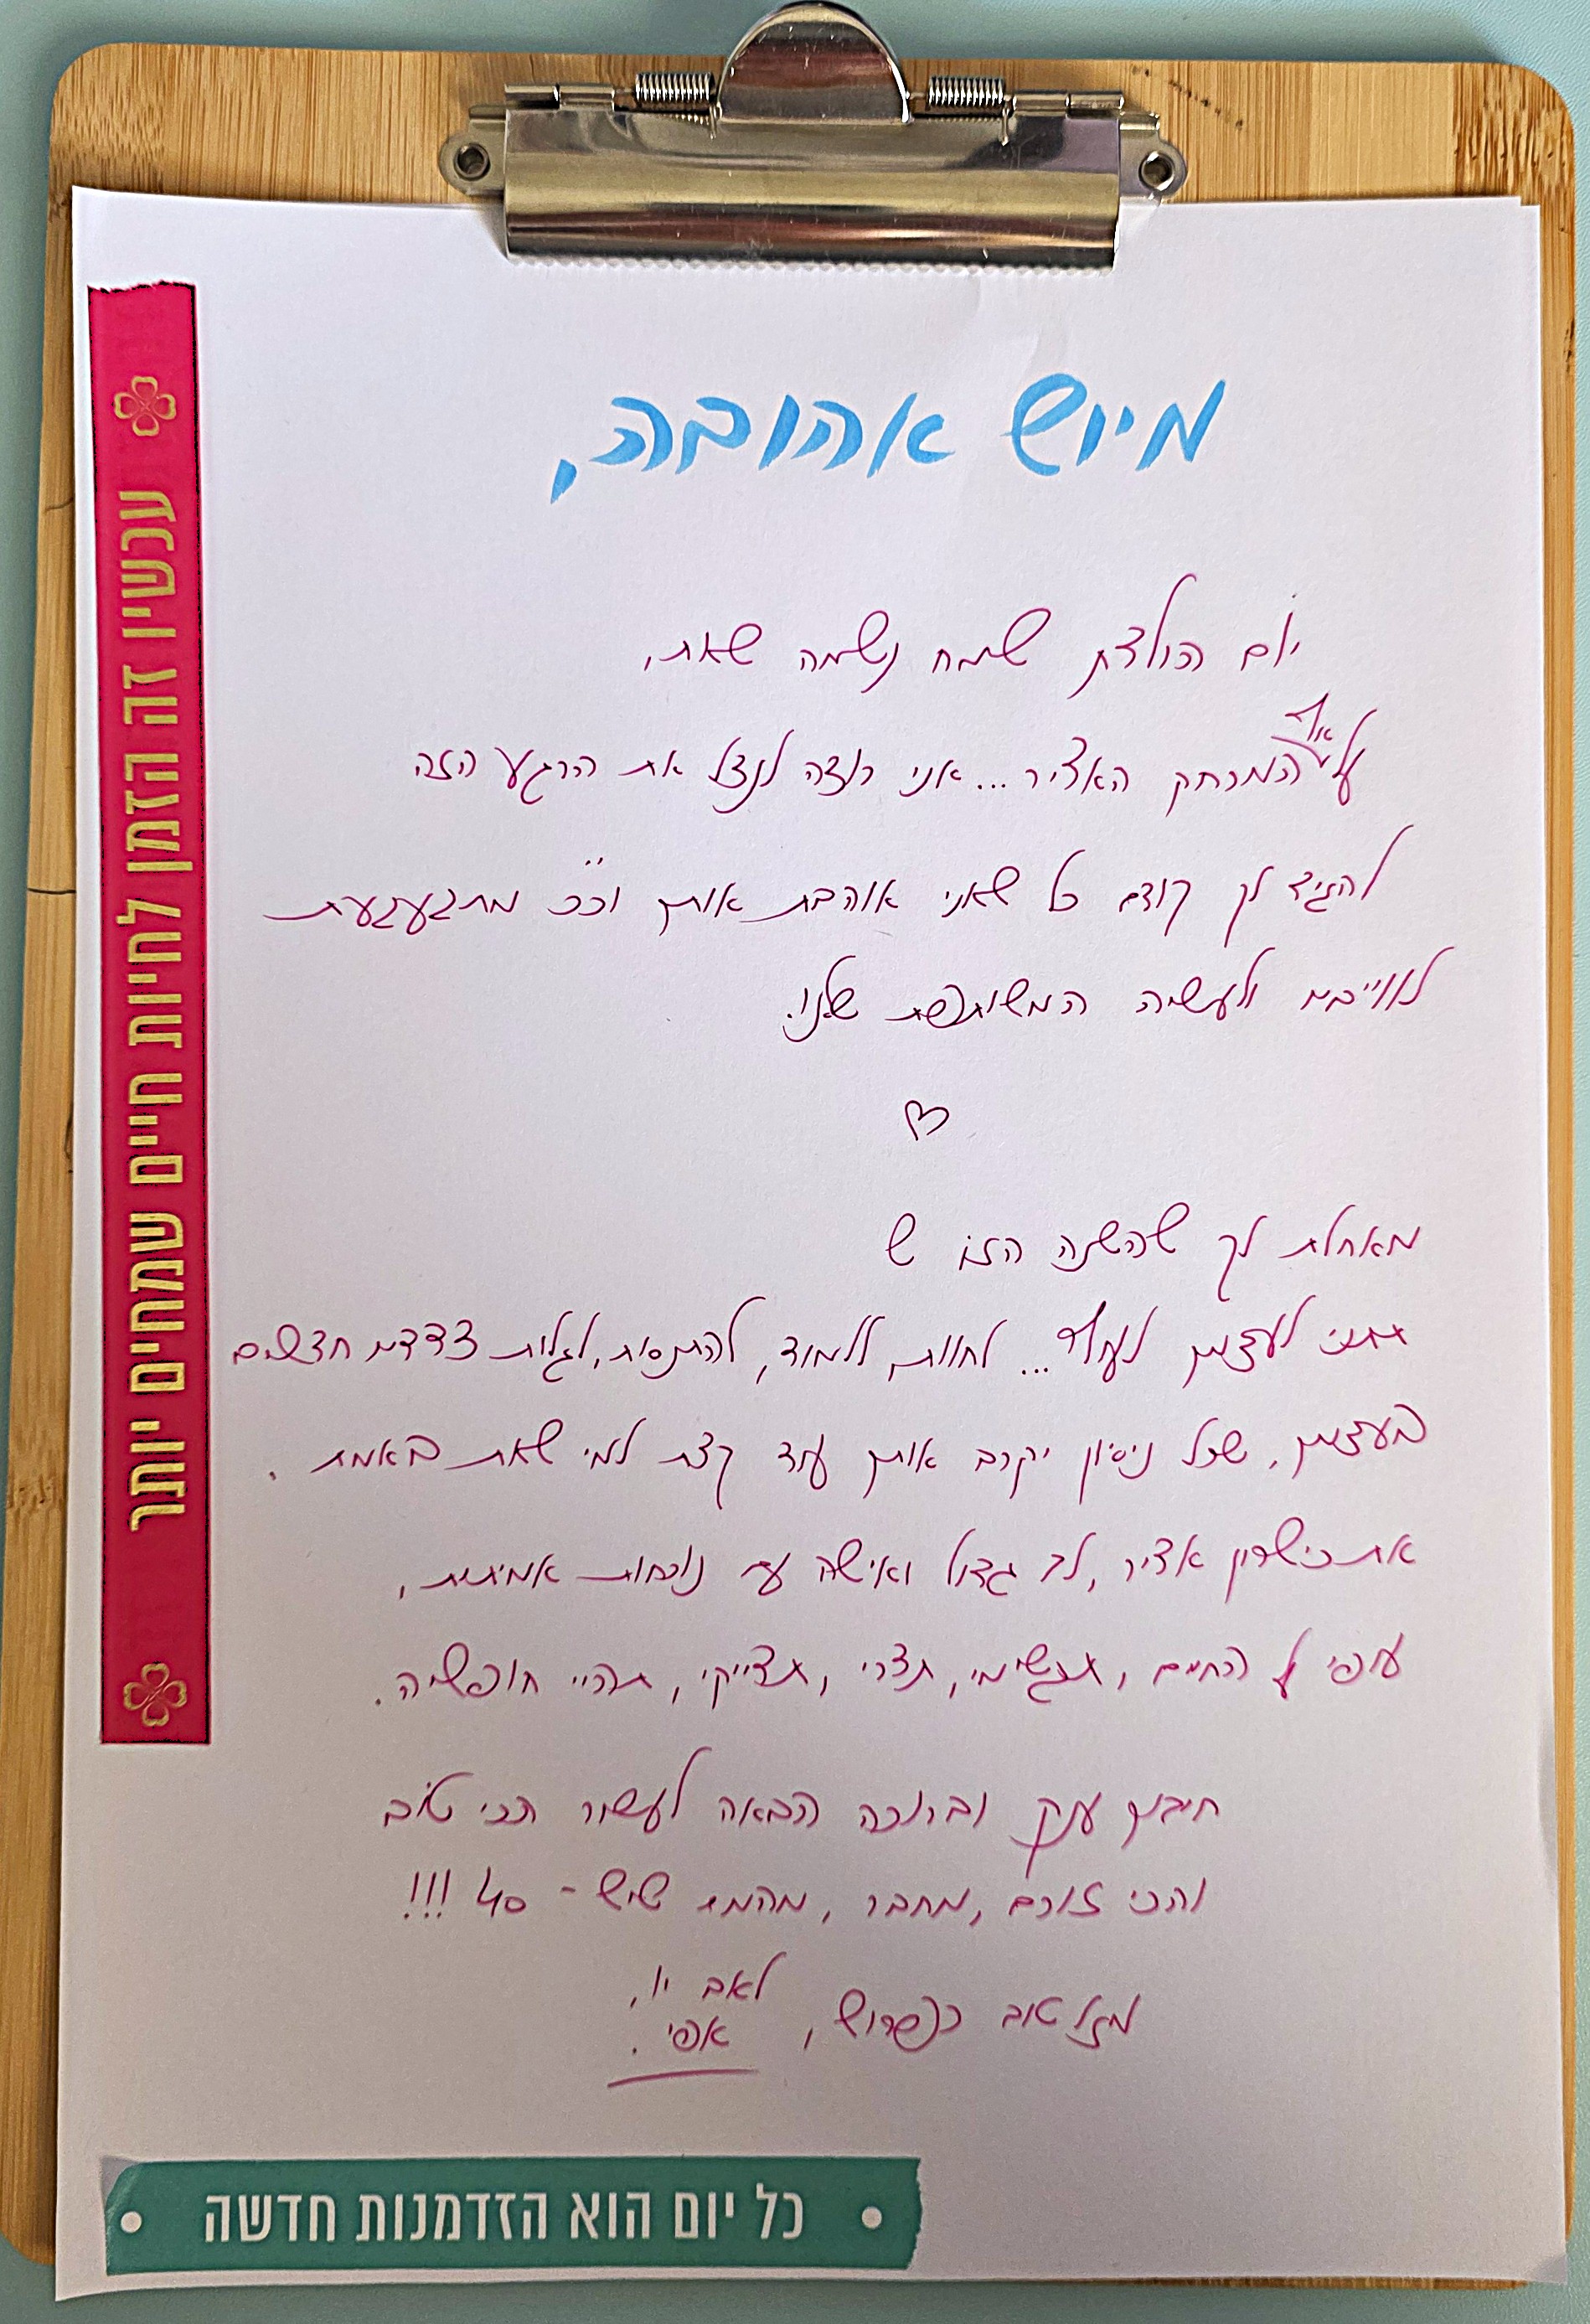 מיוש אהובה,
יום הולדת שמח נשמה שאת,
על אף המרחק האדיר... אני רוצה לנצל את הרגע הזה
להגיד לך קודם כל שאני אוהבת אותך וככ מתגעגעת
לווייבים ולעשיה המשותפת שלנו.
♡
מאחלת לך שהשנה הזו ש
תתני לעצמך לעוף... לחוות, ללמוד, להתנסות, לגלות צדדים חדשים
בעצמך, שכל ניסיון יקרב אותך עוד קצת למי שאת באמת.
את כישרון אדיר, לב גדול ואישה עם נוכחות אמיתית,
עופי על החיים, תגשימי, תצרי, תדייקי, תהיי חופשיה.
חיבוק ענק וברוכה הבאה לעשור הכי טוב
והכי זורם, מחבר, מהמם שיש - 40 !!!
מזל טוב כפרוש,
לאב יו,
אפי.
עכשיו זה הזמן לחיות חיים שמחים יותר
כל יום הוא הזדמנות חדשה